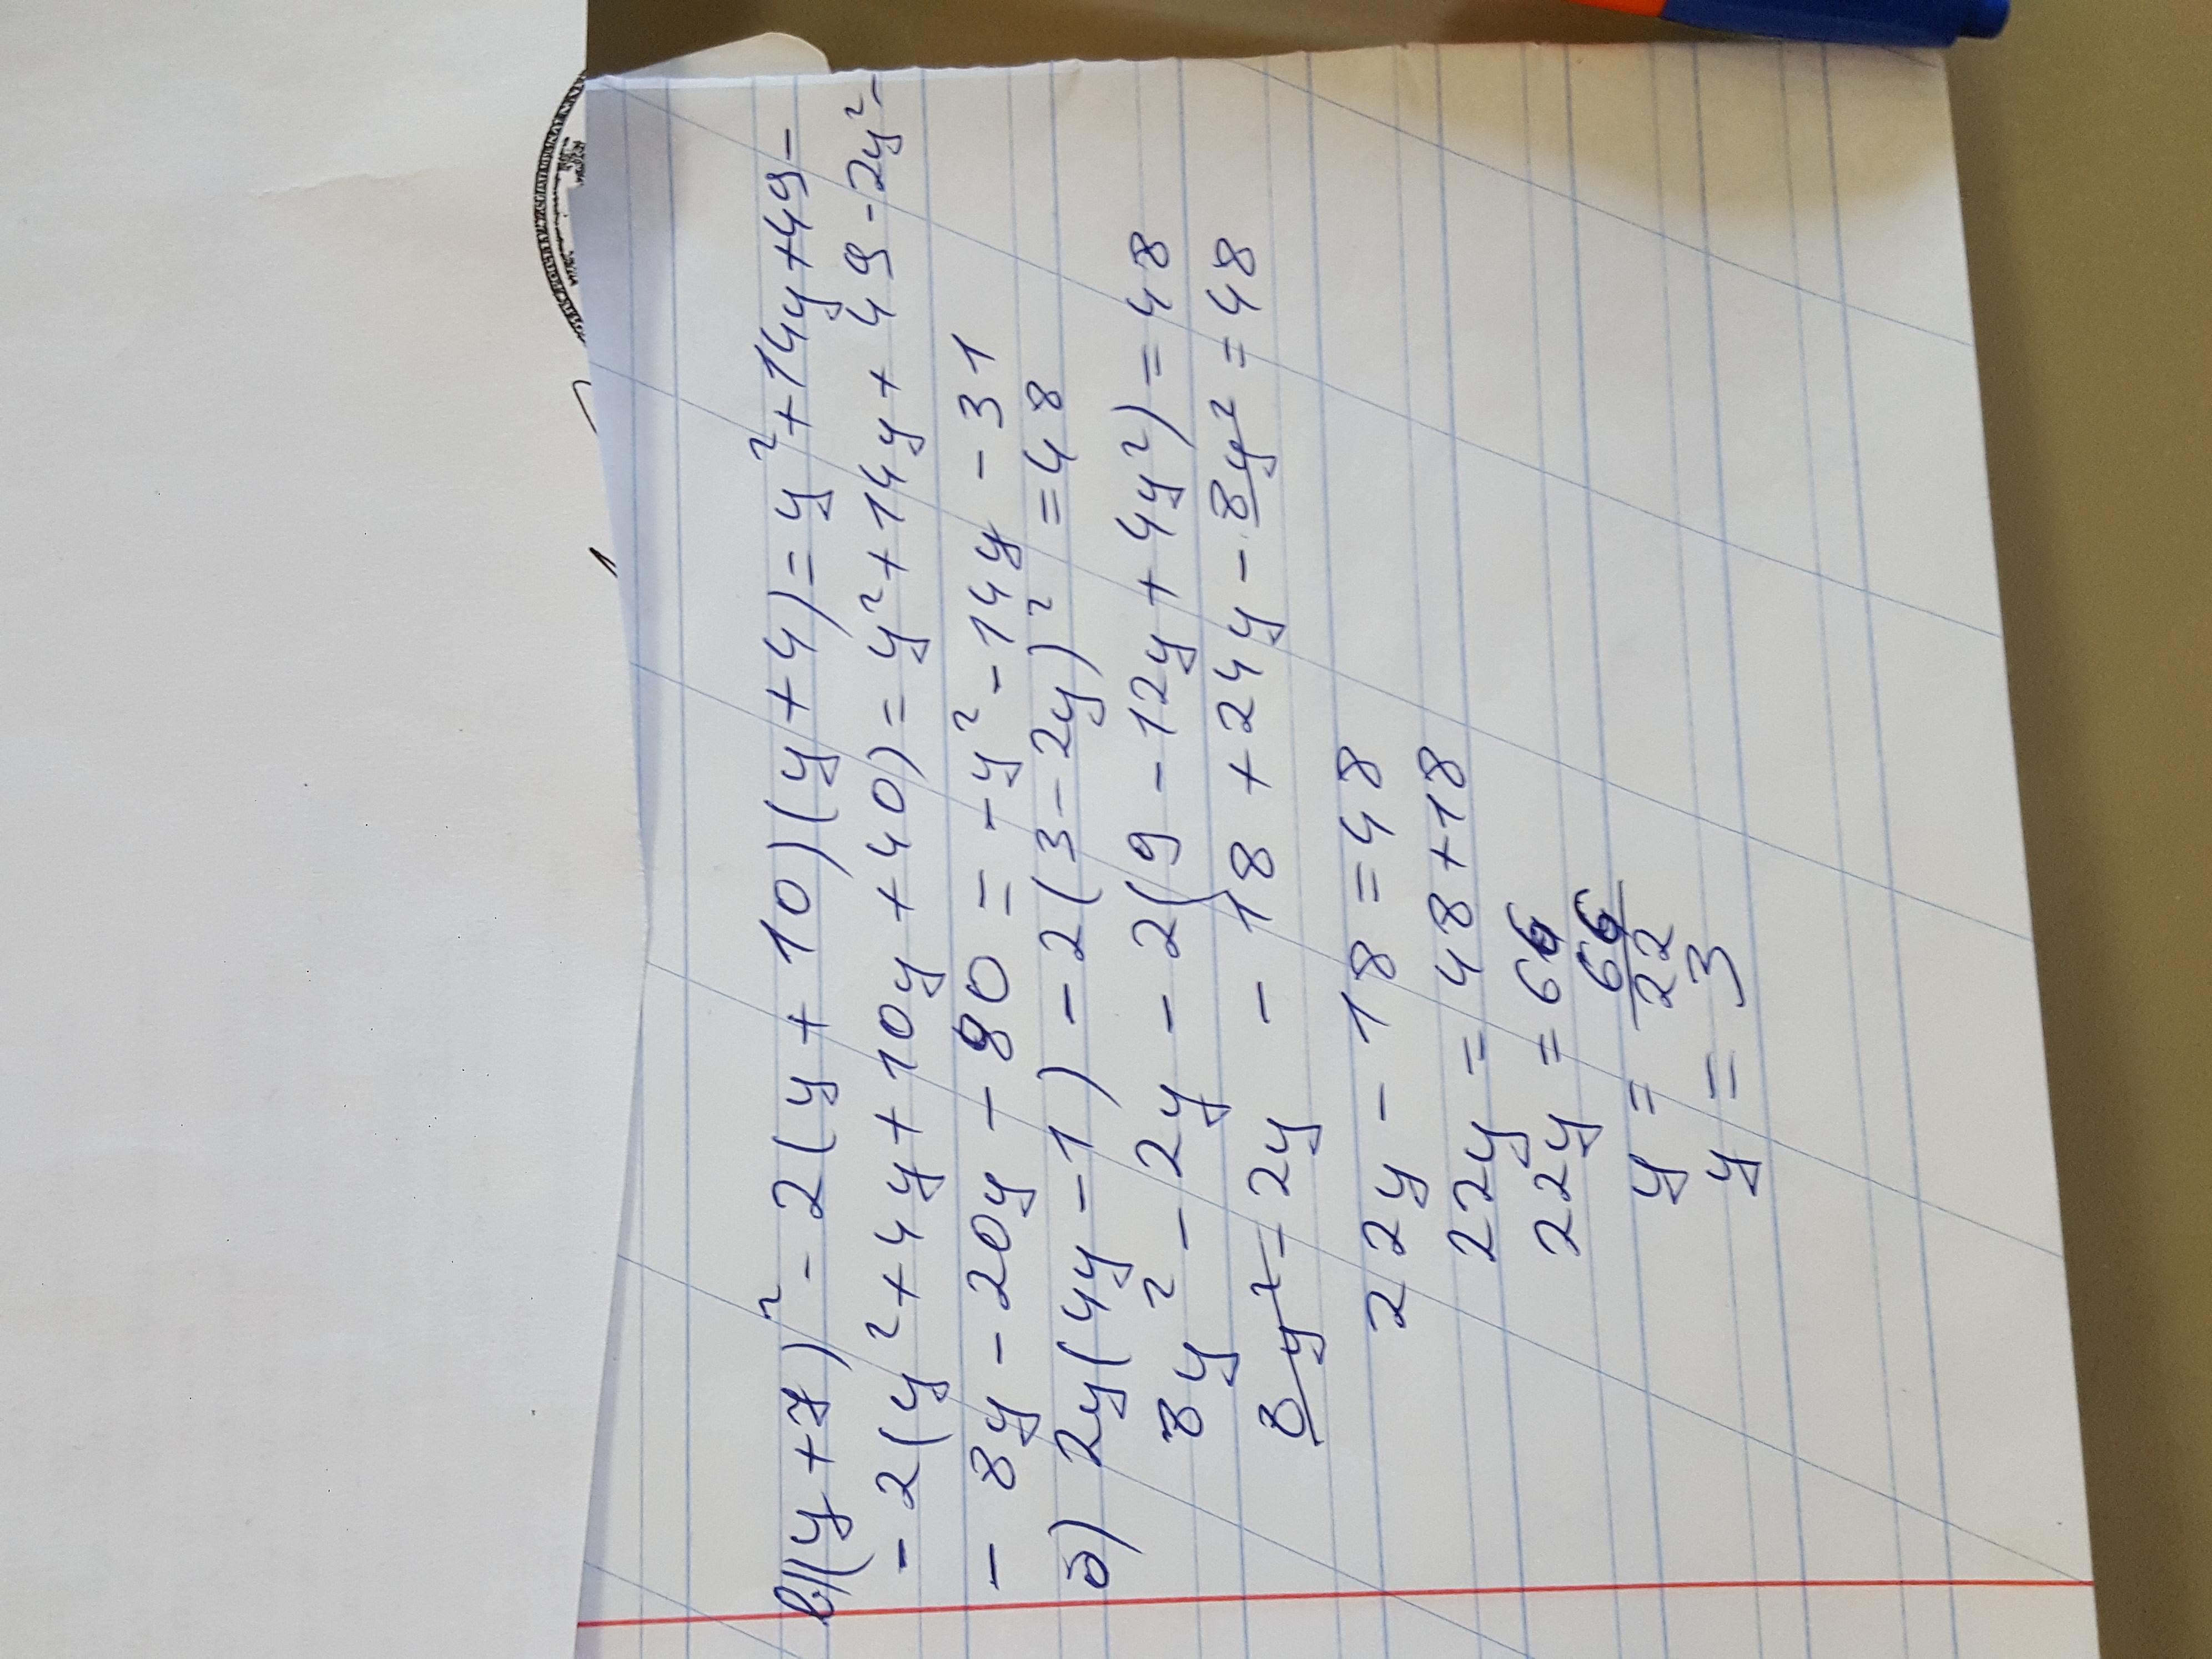 в)(y+7)² - 2(y + 10)(y+4) = y²+14y+49-
- 2(y²+4y+10y+40) = y²+14y+49-2y²-
- 8y - 20y - 80 = -y² - 14y - 31
б) 2y(4y-1) - 2(3-2y)² = 48
8y² - 2y - 2(9 - 12y + 4y²) = 48
8y² - 2y - 18 + 24y - 8y² = 48
22y - 18 = 48
22y = 48+18
22y = 66
y = 66/22
y = 3